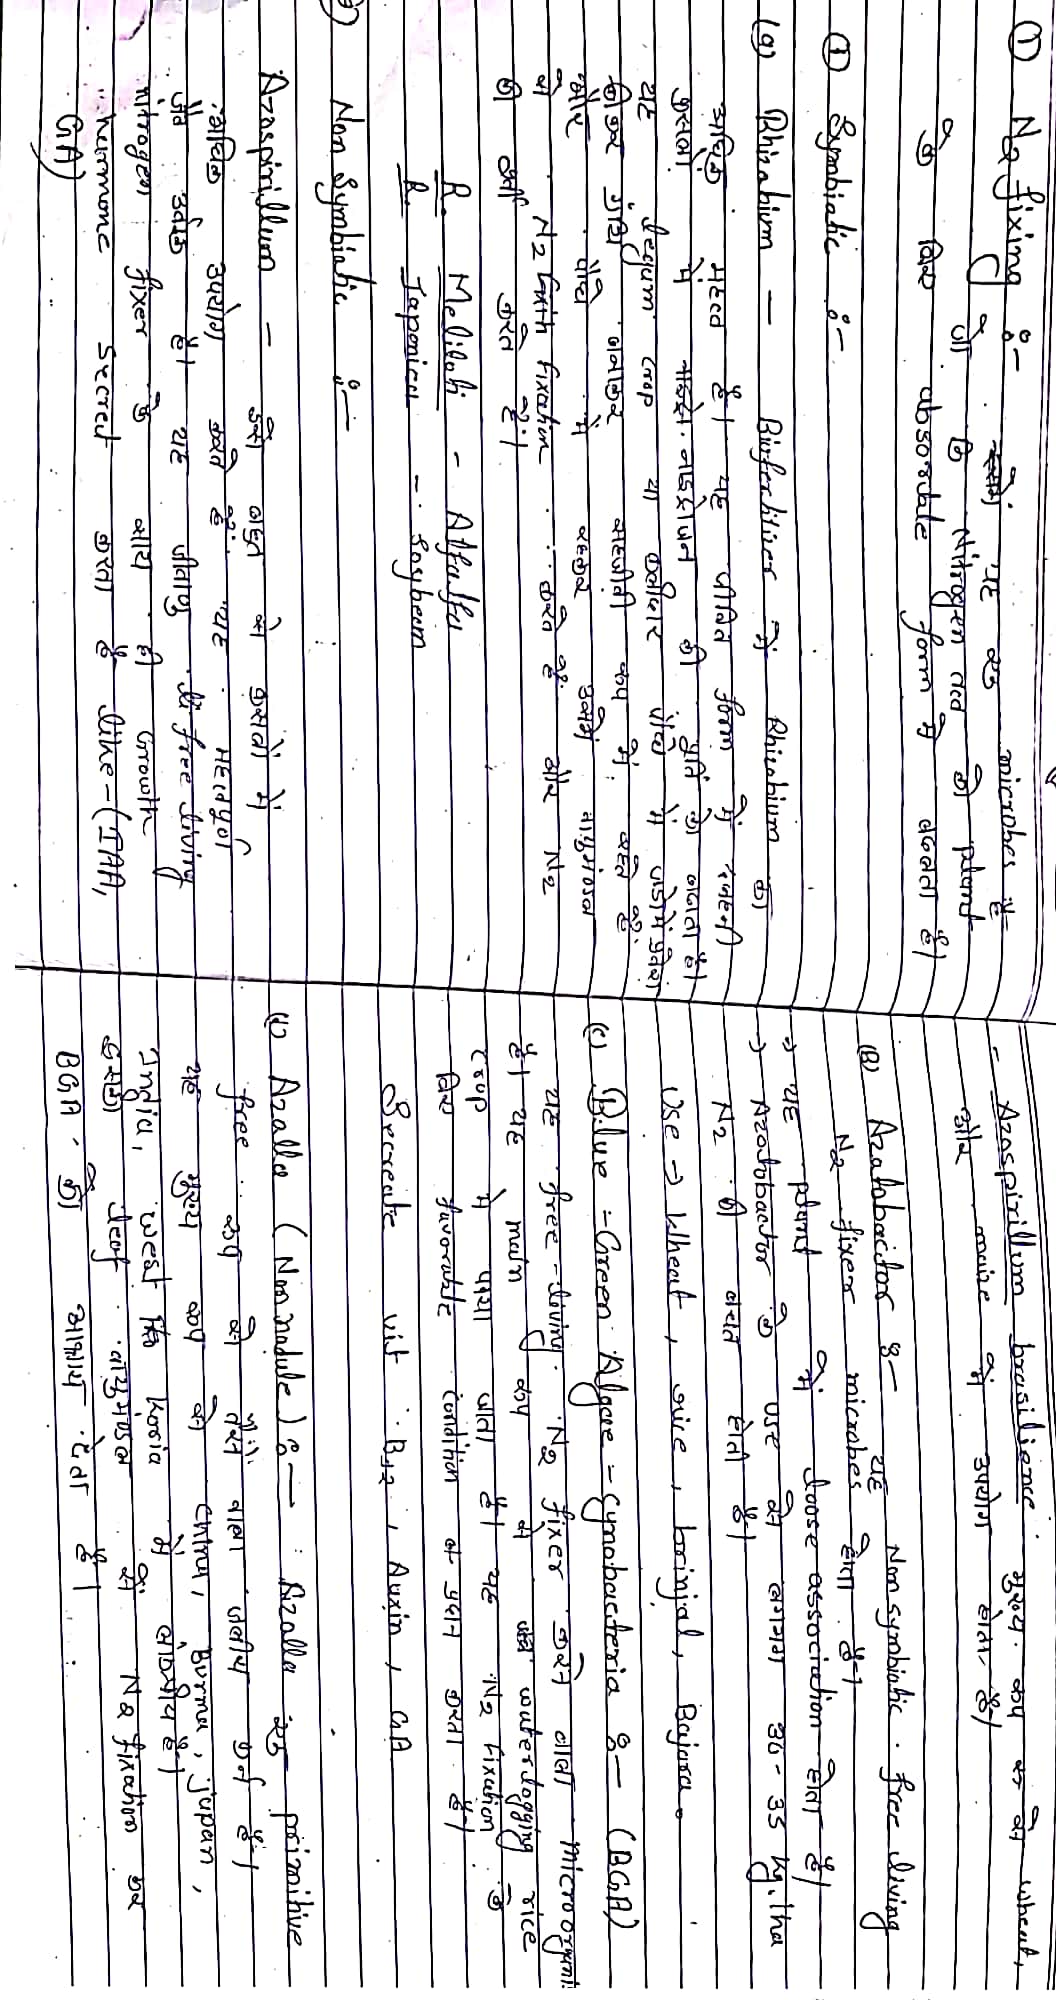 ① N2 fixing :- यह एक microbes है
जो कि Nitrogen तत्व को plant
के लिए absorbable form में बदलता है।
① Symbiotic :-
(a) Rhizobium — Biofertilizer में Rhizobium का
अधिक महत्व है। यह जीवित form में रहती
फसलों में नाइट्रोजन की पूर्ति को बढ़ाता है।
यह legum crop या दलीदार पौधों में जड़ों में प्रवेश
कर ग्रंथि बनाकर सहजीवी रूप में रहते हैं
और पौधे में रहकर उसमें वायुमंडल
से N2 with fixation करते हैं और N2
की पूर्ति करते हैं।
R. Meliloti - Alfalfa
R. Japonicu - Soybean
Non Symbiotic :-
Azospirillum - इसे बहुत से फसलों में
अधिक उपयोग करते हैं यह महत्वपूर्ण
जैव उर्वरक है। यह जीवाणु free living
nitrogen fixer के साथ ही Growth
hurmone secret करता है like - (IAA,
GA)
- Azospirillum brasiliance मुख्य रूप से wheat,
और maize में उपयोग होता है।
(B) Azatobactor :- यह Non symbiotic free living
N2 fixer microbes होता है।
→ यह plant में loose association होता है।
→ Azotobactor के use से लगभग 30-35 kg/ha
N2 की बचत होती है।
Use → Wheat, rice, brinjal, Bajara.
(c) Blue - Green Algae - Cynobacteria :- (BGA)
यह free-living N2 fixer करने वाला microorgani
है। यह main रूप से waterlogging rice
crop में पाया जाता है। यह N2 fixation के
लिए favorable condition प्रदान करता है।
Secreate vit B12, Auxin, GA
Azolla (Non nodule) :- Azolla एक primitive
free रूप से तैरने वाला जलीय फर्न है।
यह मुख्य रूप से China, Burma, Japan,
India, West Korea में लोकप्रिय है।
इसकी leaf वायुमंडल से N2 fixation कर
BGA को आश्रय देता है।